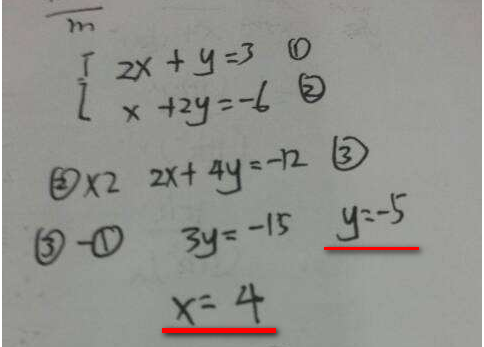 m
{ 2x + y = 3 ①
x + 2y = -6 ②
② × 2 2x + 4y = -12 ③
③ - ① 3y = -15 y = -5
x = 4